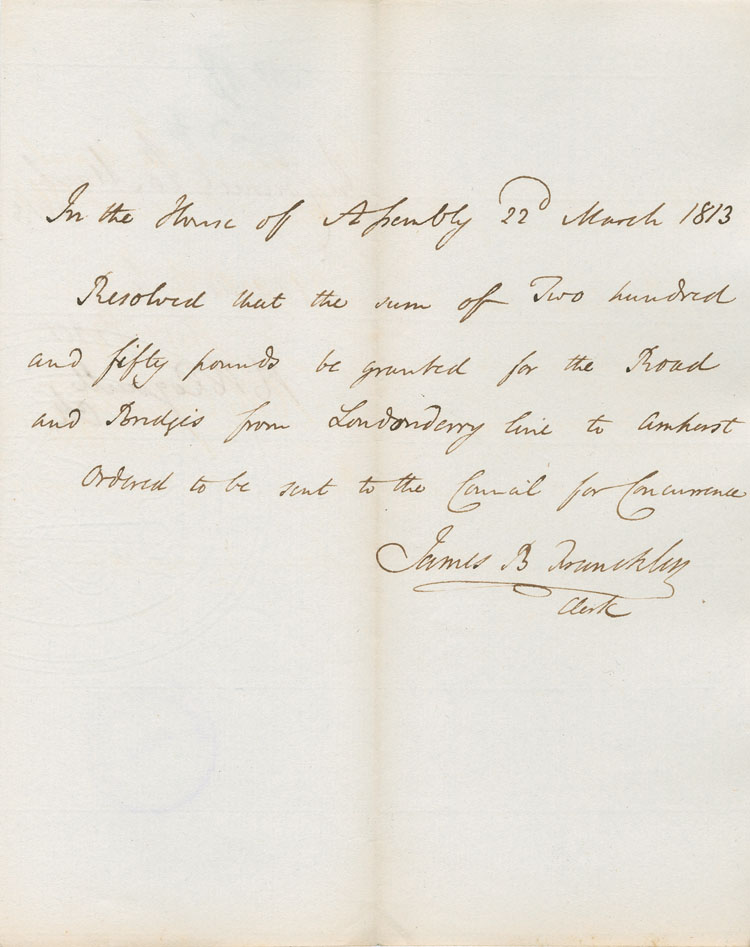 In the House of Assembly 22d March 1813
Resolved that the sum of Two hundred
and fifty pounds be granted for the Road
and Bridges from Londonderry line to Amherst
Ordered to be sent to the Council for Concurrence
James B Franckley
Clerk